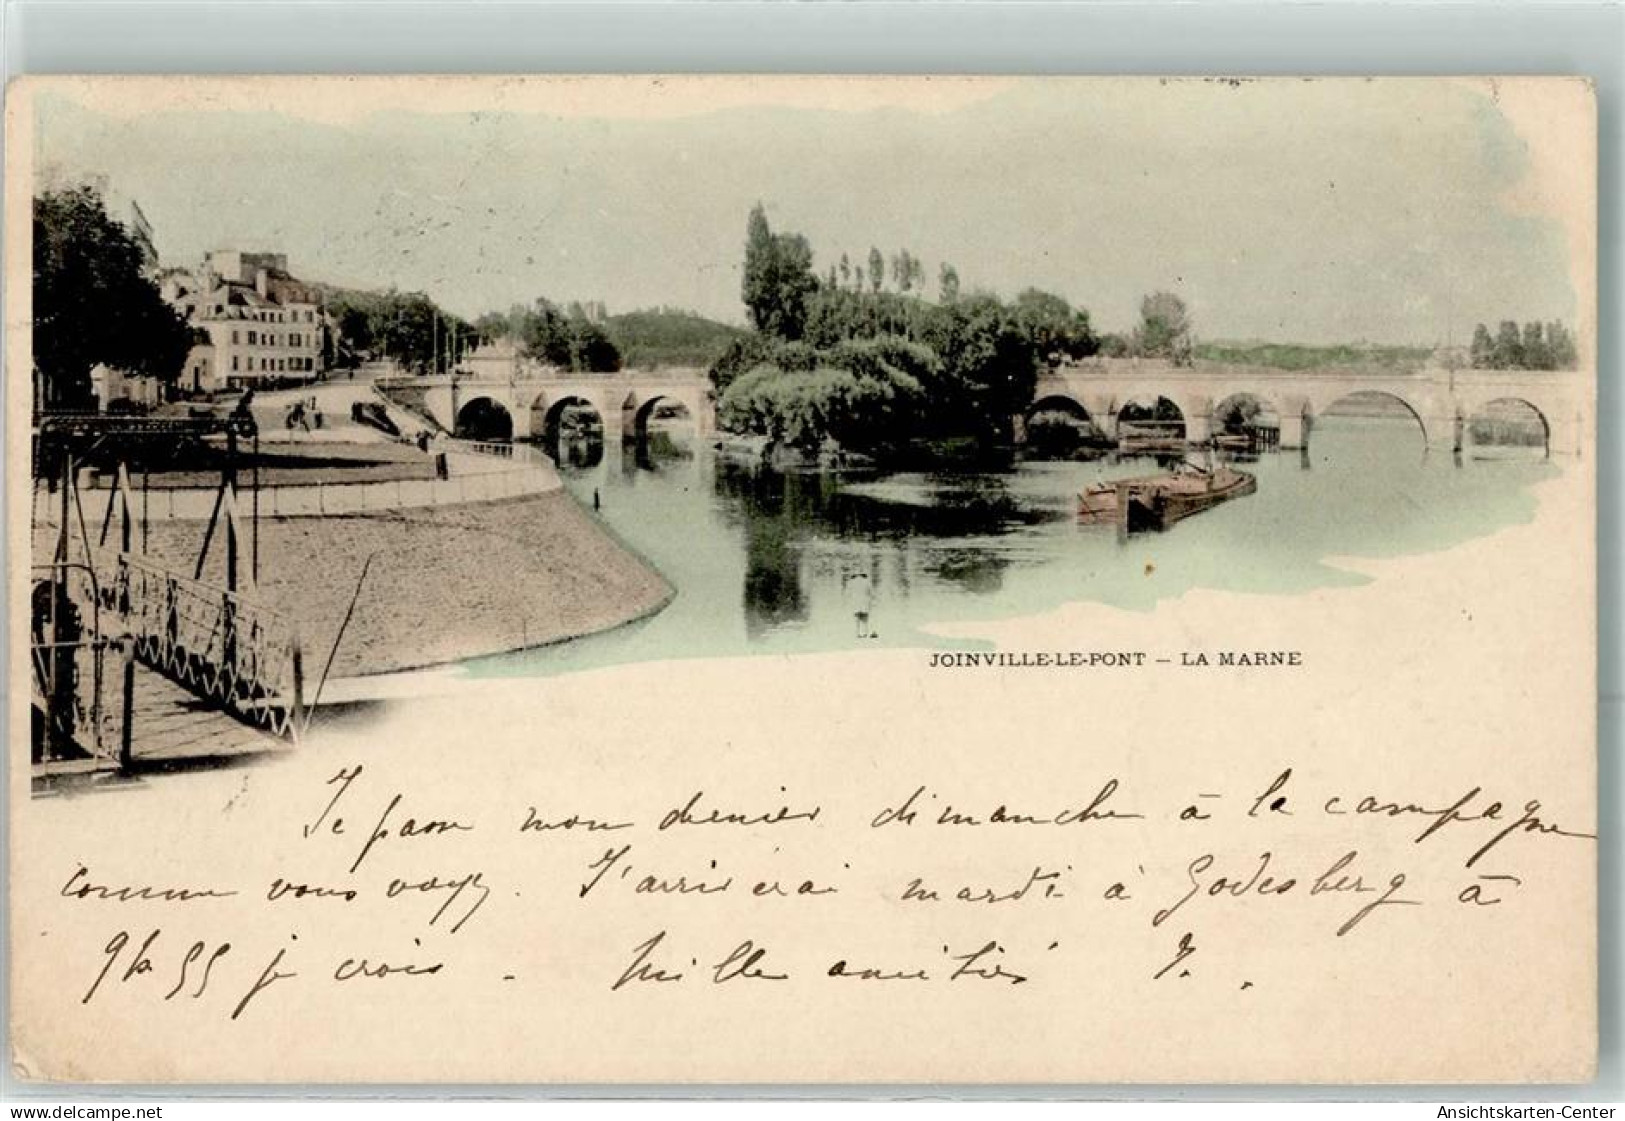 JOINVILLE-LE-PONT — LA MARNE
Je passe mon dernier dimanche à la campagne
comme vous voyez. J'arriverai mardi à Godesberg à
9h 55 je crois . Mille amitiés
delcampe.net/ma-cartes
Ansichtskarten-Center